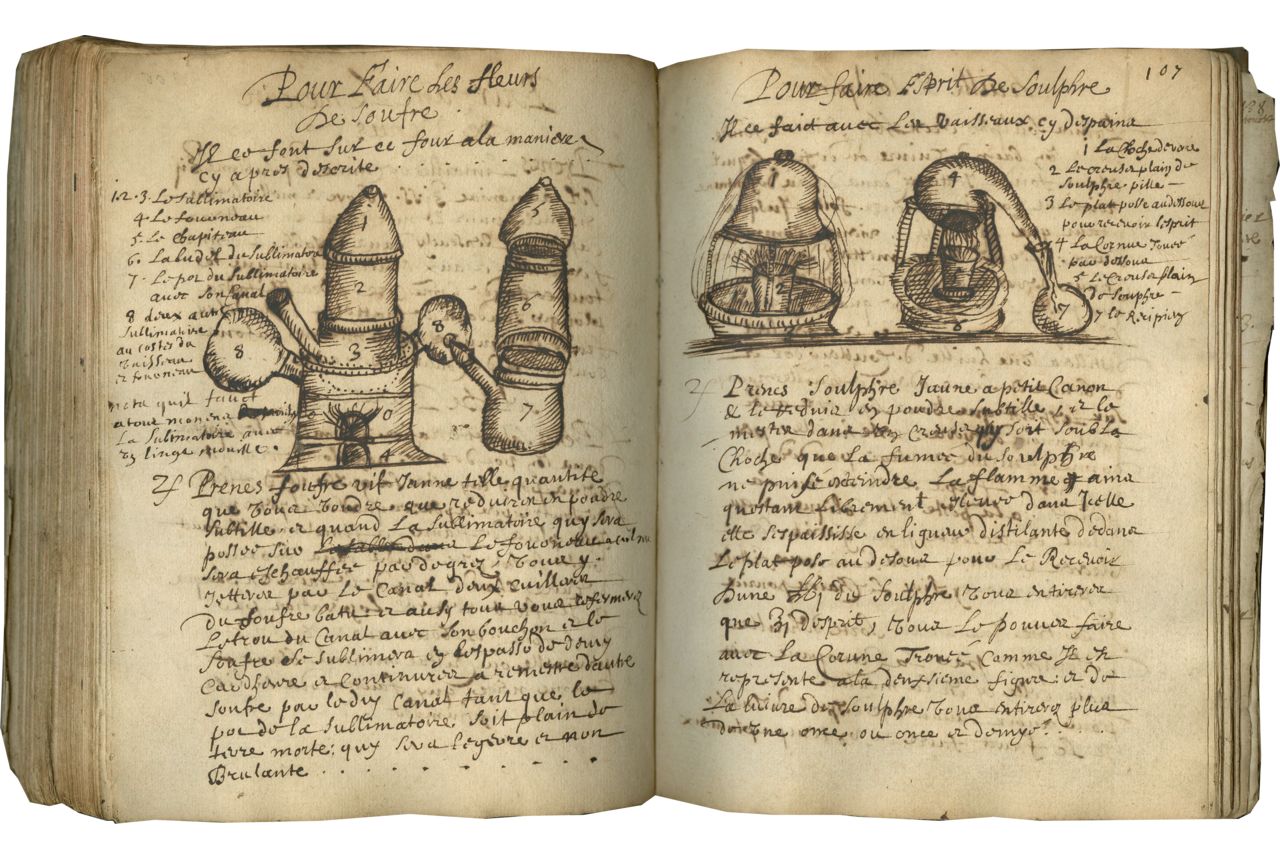 Pour Faire Les fleurs
De Soufre.
Il ce font sur ce four a la maniere
cy apres descrite
1 2 · 3 · Le sublimatoire
4 Le fourneau
5 Le chapiteau
6 · La lud el du sublimatoire
7 · Le pot du sublimatoire
avec son Canal
8 deux aux
sublimatoire
au costes du
vaisseau
et fourneau
nota quil fauct
a tout momens
La sublimatoire avec
linge mouille ·
1
2
3
4
5
6
7
8
8
Prenes soufre vif Jaune telle quantité
que vous voudres que reduires en poudre
subtille et quand La sublimatoire quy sera
possee sur Le fourneau
sera eschauffee par degrez, vous y ·
Jetterez par Le Canal deux cuilliers
du soufre batu et ausy tous vous refermerez
Letrou du Canal avec son bouchon et le
soufre se sublimera en Lespasse de demy
card heure et Continurez a remettre dautre
soufre par le du Canal tant que le
pot de La sublimatoire soit plain de
terre morte, quy sera legere et non
Brulante
107
Pour faire Esprit De Soulphre
Il ce faid avec Les vaisseaux cy despains
1 La Cloche de vere
2 Le creuset plain de
soulphre pille
3 Le plat posse au dessous
pour recevoir lesprit
4 La Cornue trouee
par dessous
5 Le Creuset plain
de soulphre
7 le Recipient
2
4
7
8
Prenes Soulphre Jaune a petit Canon
& le reduis en poudre subtille, et le
mettez dans un Creuset quy soit soubs La
Cloche que La fumee du soulphre
ne puisse esteindre La flamme ains
questant librement eslevee dans Icelle
elle sespaississe en liqueur distilante dedans
Le plat posé au desous pour Le Recevoir
Dune du Soulphre vous entirerez
que desprit, vous Le pouvez faire
avec La Cornue Trouee Comme Il est
represente a la deuxsieme figure : et de
La livre du Soulphre vous entirerez plus
dune once ou once et demye